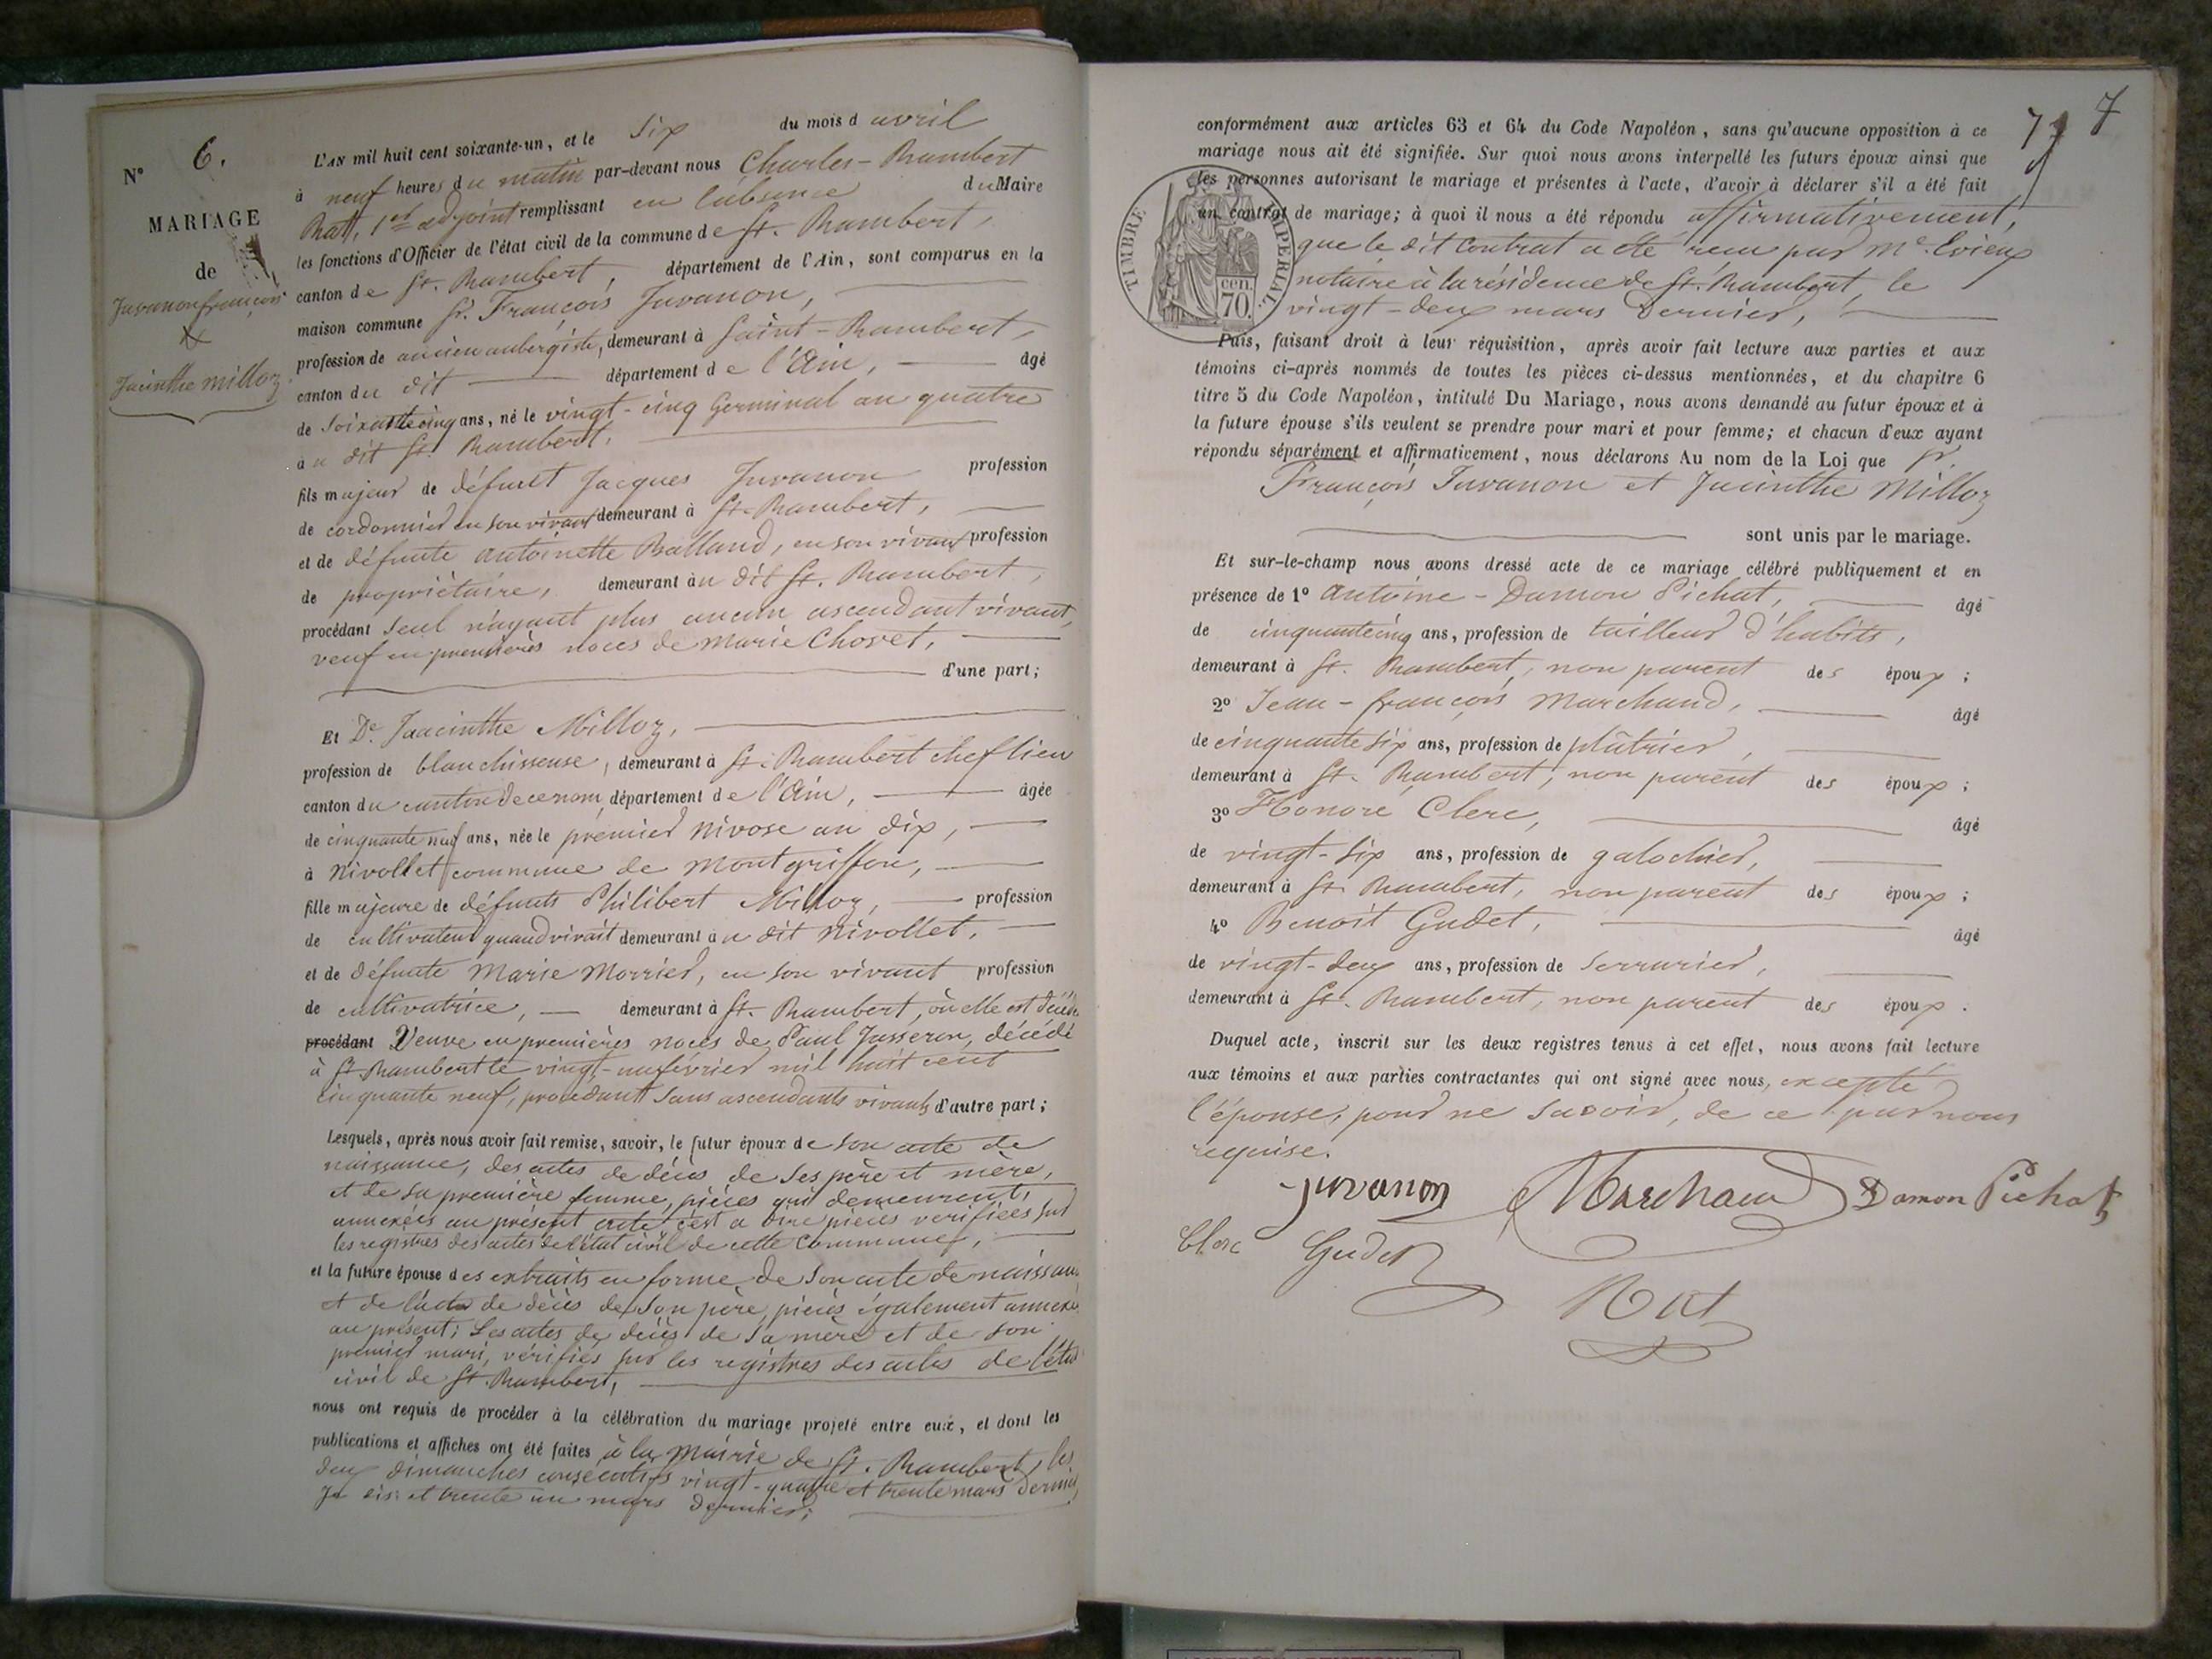 N° 6.
MARIAGE
de
Juvanon françois
&
Jacinthe Milloz
L'AN mil huit cent soixante-un, et le six du mois d avril
à neuf heures du matin par-devant nous Charles-Rambert
Rat, 1er adjoint remplissant en l'absence du Maire
les fonctions d'Officier de l'état civil de la commune de St. Rambert,
canton de St. Rambert, département de l'Ain, sont comparus en la
maison commune Sr. François Juvanon,
profession de ancien aubergiste, demeurant à Saint-Rambert,
canton du dit département de l'Ain, âgé
de soixante cinq ans, né le vingt-cinq Germinal an quatre
au dit St. Rambert.
fils majeur de défunt Jacques Juvanon profession
de cordonnier en son vivant demeurant à St. Rambert,
et de défunte Antoinette Balland, en son vivant profession
de propriétaire, demeurant au dit St. Rambert,
procédant seul n'ayant plus aucun ascendant vivant,
veuf en premières noces de Marie Chovet,
d'une part;
Et De. Jaacinthe Milloz,
profession de blanchisseuse, demeurant à St. Rambert chef lieu
canton du canton de ce nom, département de l'Ain, âgée
de cinquante neuf ans, née le premier nivose an dix,
à Nivollet commune de Montgriffon,
fille majeure de défunts Philibert Milloz, profession
de cultivateur quand vivait demeurant au dit Nivollet,
et de défunte Marie Morrier, en son vivant profession
de cultivatrice, demeurant à St. Rambert, où elle est décédée
procédant Veuve en premières noces de Paul Jusseron, décédé
à St. Rambert le vingt-un février mil huit cent
cinquante neuf, procédant sans ascendants vivants d'autre part;
Lesquels, après nous avoir fait remise, savoir, le futur époux de son acte de
naissance, des actes de décès de ses père et mère,
et de sa première femme, pièces qui demeurent,
annexées au présent acte c'est a dire pièces vérifiées sur
les registres des actes de l'état civil de cette commune,
et la future épouse des extraits en forme de son acte de naissance
et de l'acte de décès de son père, pièces également annexées
au présent; Les actes de décès de sa mère et de son
premier mari, vérifiés sur les registres des actes de l'état
civil de St. Rambert,
nous ont requis de procéder à la célébration du mariage projeté entre eux, et dont les
publications et affiches ont été faites à la Mairie de St. Rambert, les
deux dimanches consécutifs vingt-quatre et trente mars dernier,
et trente un mars dernier;
7
conformément aux articles 63 et 64 du Code Napoléon, sans qu'aucune opposition à ce
mariage nous ait été signifiée. Sur quoi nous avons interpellé les futurs époux ainsi que
les personnes autorisant le mariage et présentes à l'acte, d'avoir à déclarer s'il a été fait
un contrat de mariage; à quoi il nous a été répondu affirmativement,
que le dit contrat a été reçu par Me. Evieux
notaire à la résidence de St. Rambert, le
vingt-deux mars dernier,
TIMBRE IMPERIAL.
70. cen.
Puis, faisant droit à leur réquisition, après avoir fait lecture aux parties et aux
témoins ci-après nommés de toutes les pièces ci-dessus mentionnées, et du chapitre 6
titre 5 du Code Napoléon, intitulé Du Mariage, nous avons demandé au futur époux et à
la future épouse s'ils veulent se prendre pour mari et pour femme; et chacun d'eux ayant
répondu séparément et affirmativement, nous déclarons Au nom de la Loi que Sr.
François Juvanon et Jacinthe Milloz
sont unis par le mariage.
Et sur-le-champ nous avons dressé acte de ce mariage célébré publiquement et en
présence de 1° Antoine-Damon Pichat, âgé
de cinquante cinq ans, profession de tailleur d'habits,
demeurant à St. Rambert, non parent des époux;
2° Jean-françois Marchand, âgé
de cinquante six ans, profession de plâtrier,
demeurant à St. Rambert, non parent des époux;
3° Honoré Clerc, âgé
de vingt-six ans, profession de galochier,
demeurant à St. Rambert, non parent des époux;
4° Benoit Gudet, âgé
de vingt-deux ans, profession de serrurier,
demeurant à St. Rambert, non parent des époux.
Duquel acte, inscrit sur les deux registres tenus à cet effet, nous avons fait lecture
aux témoins et aux parties contractantes qui ont signé avec nous, excepté
l'épouse, pour ne savoir, de ce par nous
requise.
juvanon Marchand Damon Pichat
Clerc Gudet
Rat